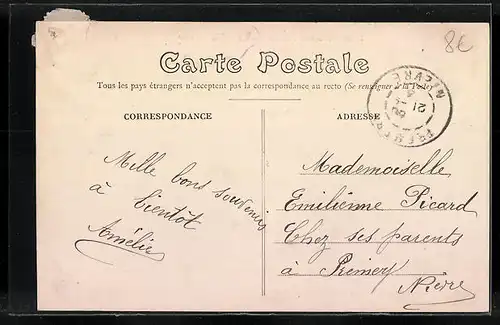 8€
Carte Postale
Tous les pays étrangers n'acceptent pas la correspondance au recto (Se renseigner à la Poste)
CORRESPONDANCE
ADRESSE
NIEVRE
21
PREMERY
Mille bons souvenirs
à bientôt
Amélie
Mademoiselle
Emilienne Picard
Chez ses parents
à Prémery
Nièvre